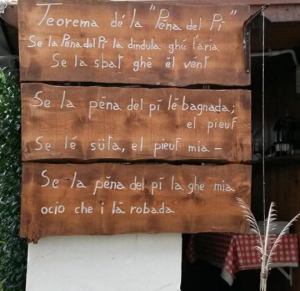 Teorema dé la "Pëna del Pï"
Se la Pëna del Pï la dindula ghé l'aria
Se la sbat ghè ël vent
Se la pëna del pï lè bagnada;
el pieuf
Se lé süta, el pieuf mia –
Se la pëna del pï la ghe mia
ocio che i là robada